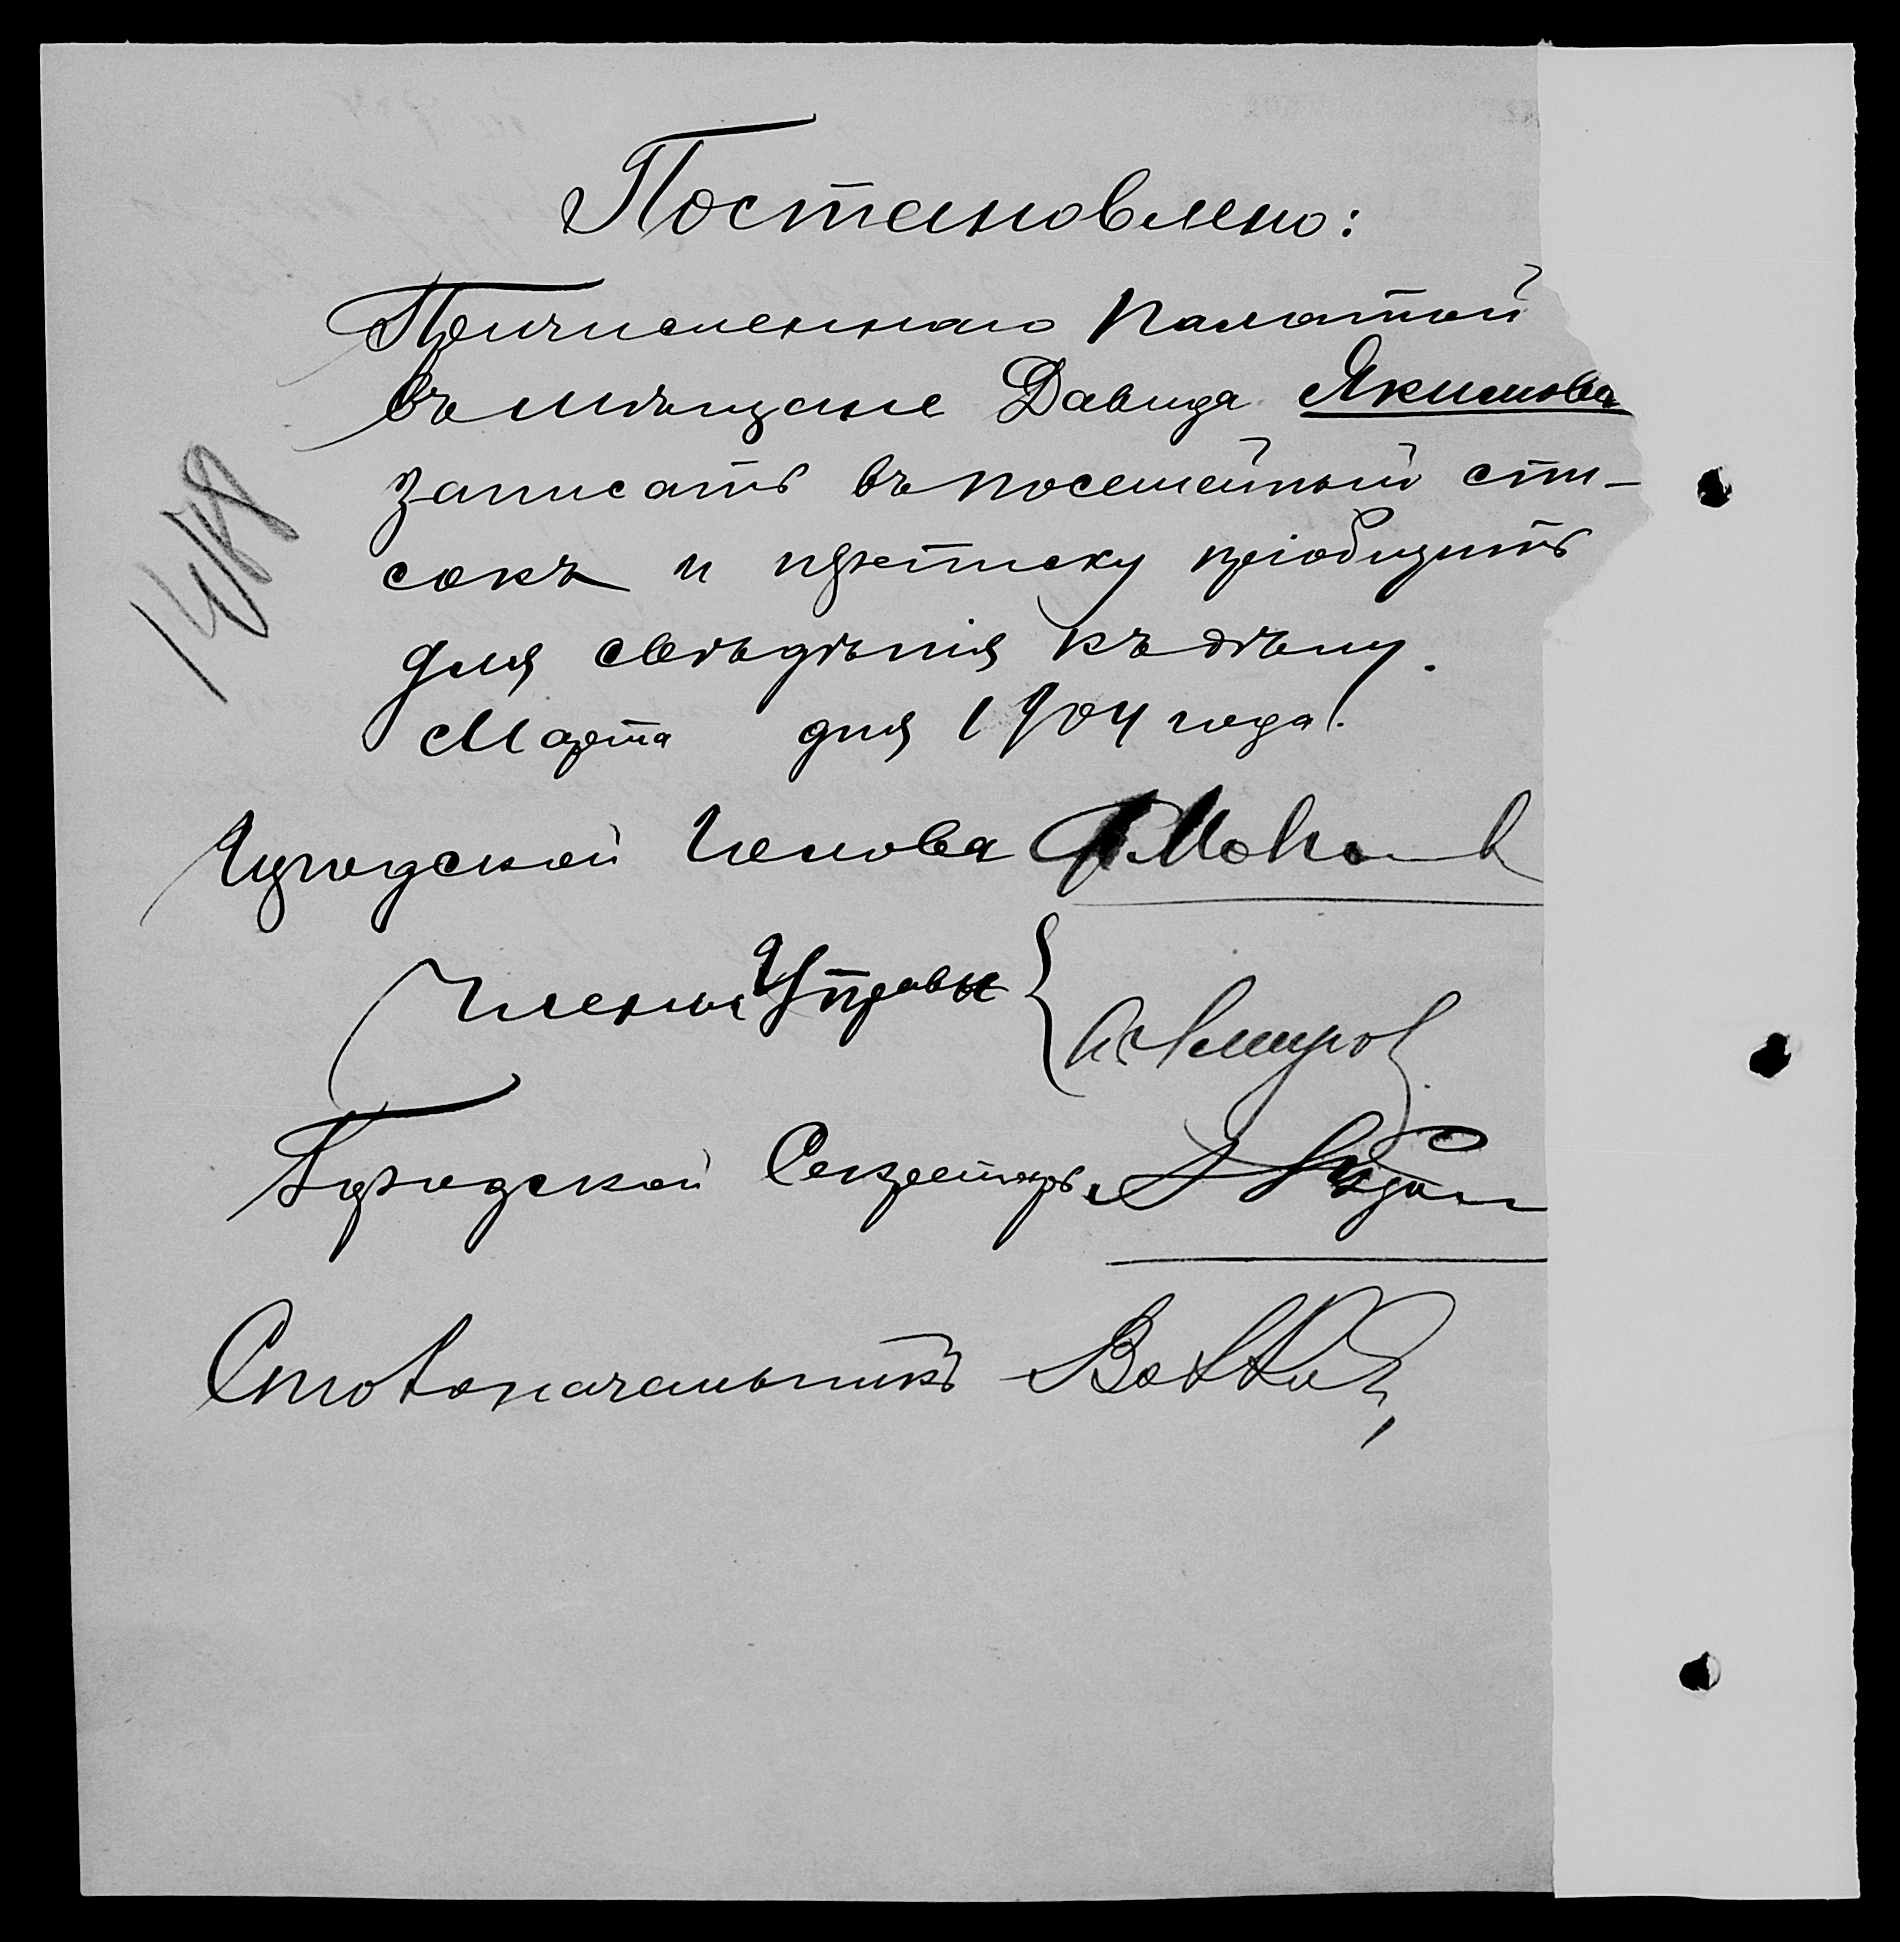 Постановлено:
Причисленнаго Палатой
въ мѣщане Давида Якимова
записать въ посемейный спи-
сокъ и переписку пріобщить
для свѣдѣнія къ дѣлу.
Марта дня 1904 года.
Городской Голова
Члены Управы
Городской Секретарь
Столоначальникъ